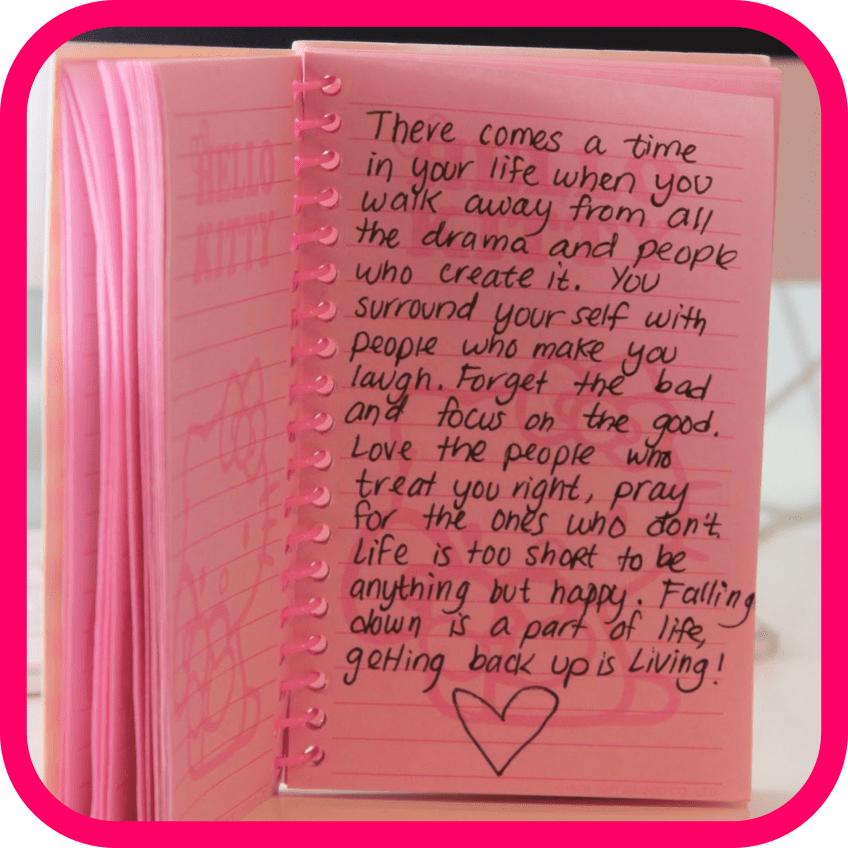 HELLO
KITTY
There comes a time
in your life when you
walk away from all
the drama and people
who create it. You
surround your self with
people who make you
laugh. Forget the bad
and focus on the good.
Love the people who
treat you right, pray
for the ones who don't
Life is too short to be
anything but happy. Falling
down is a part of life,
getting back up is Living!